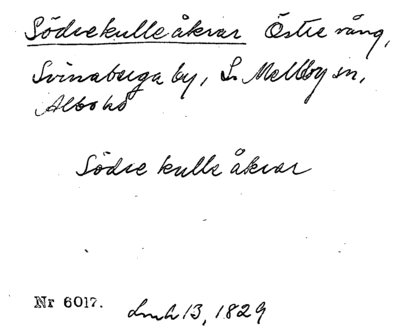 Södrekulleåkrar Östre vång,
Svinaberga by, S. Mellby sn,
Albo hd
Södre kulle åkrar
Nr 6017. Lmh 13, 1829